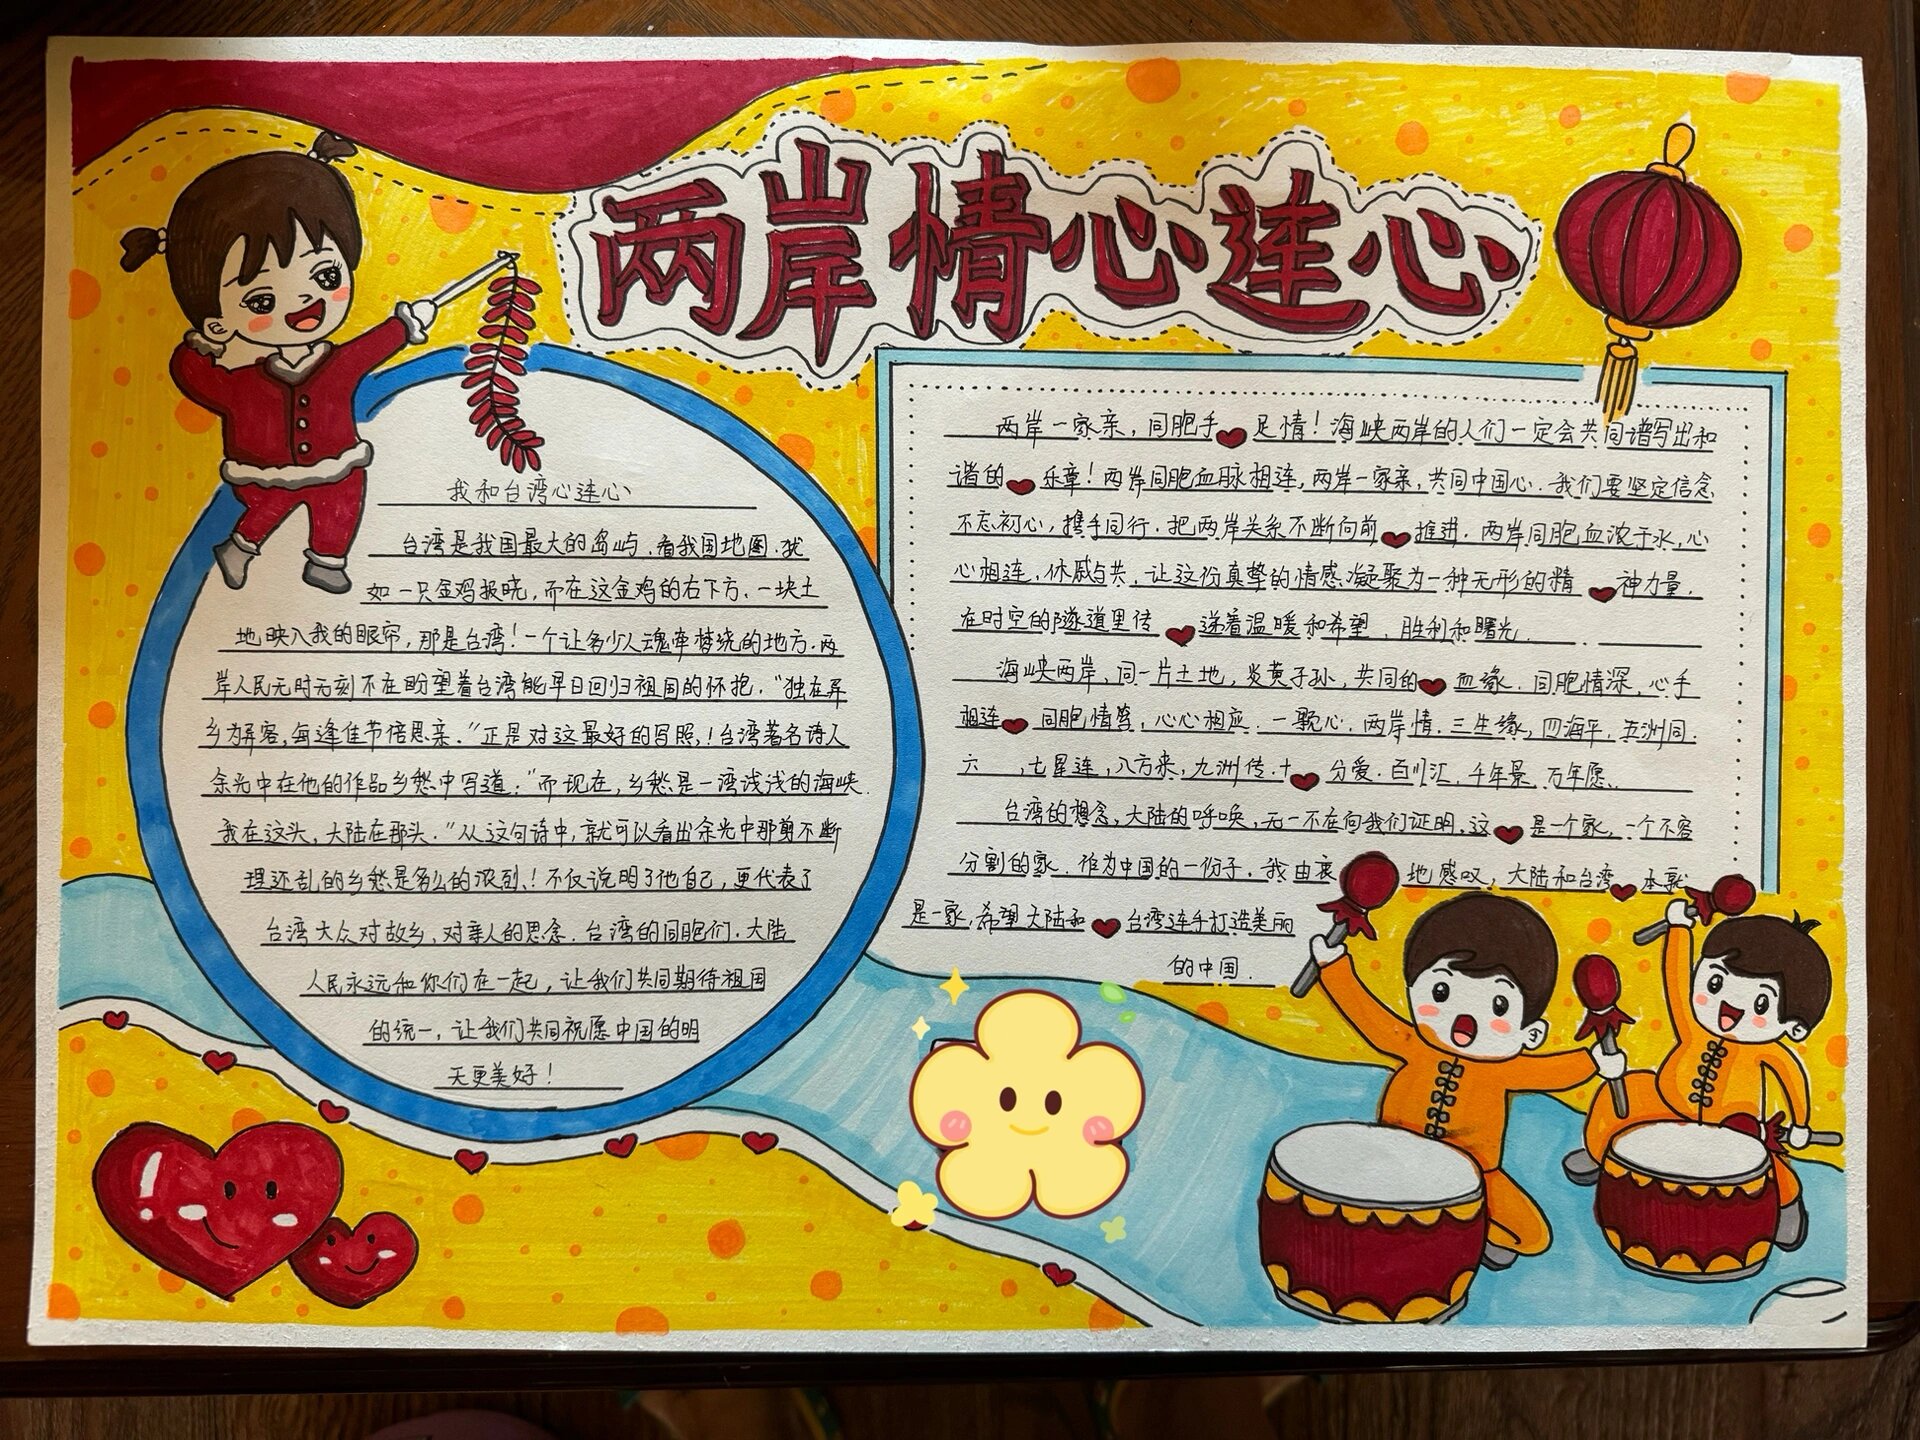 两岸情心连心
我和台湾心连心
台湾是我国最大的岛屿.看我国地图.犹
如一只金鸡报晓,而在这金鸡的右下方.一块土
地映入我的眼帘,那是台湾!一个让多少人魂牵梦绕的地方.两
岸人民无时无刻不在盼望着台湾能早日回归祖国的怀抱."独在异
乡为异客,每逢佳节倍思亲."正是对这最好的写照,!台湾著名诗人
余光中在他的作品乡愁中写道:"而现在,乡愁是一湾浅浅的海峡.
我在这头,大陆在那头."从这句诗中,就可以看出余光中那剪不断
理还乱的乡愁是多么的浓烈,!不仅说明了他自己,更代表了
台湾大众对故乡,对亲人的思念.台湾的同胞们.大陆
人民永远和你们在一起,让我们共同期待祖国
的统一,让我们共同祝愿中国的明
天更美好!
两岸一家亲,同胞手足情!海峡两岸的人们一定会共同谱写出和
谐的乐章!两岸同胞血脉相连,两岸一家亲,共同中国心.我们要坚定信念
不忘初心,携手同行.把两岸关系不断向前推进.两岸同胞血浓于水,心
心相连.休戚与共,让这份真挚的情感凝聚为一种无形的精神力量.
在时空的隧道里传递着温暖和希望、胜利和曙光.
海峡两岸,同一片土地,炎黄子孙,共同的血缘.同胞情深,心手
相连同胞情笃,心心相应.一颗心.两岸情.三生缘,四海平.五洲同.
六,七星连,八方来,九洲传.十分爱.百川汇.千年景.万年愿.
台湾的想念,大陆的呼唤,无一不在向我们证明,这是一个家,一个不容
分割的家.作为中国的一份子,我由衷地感叹,大陆和台湾本就
是一家,希望大陆和台湾连手打造美丽
的中国.